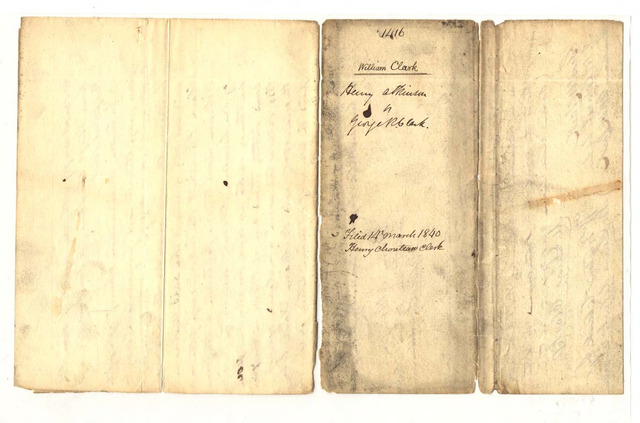 1416
William Clark
Henry Atkinson
George R Clark.
Filed 14th March 1840
Henry Chouteau Clerk